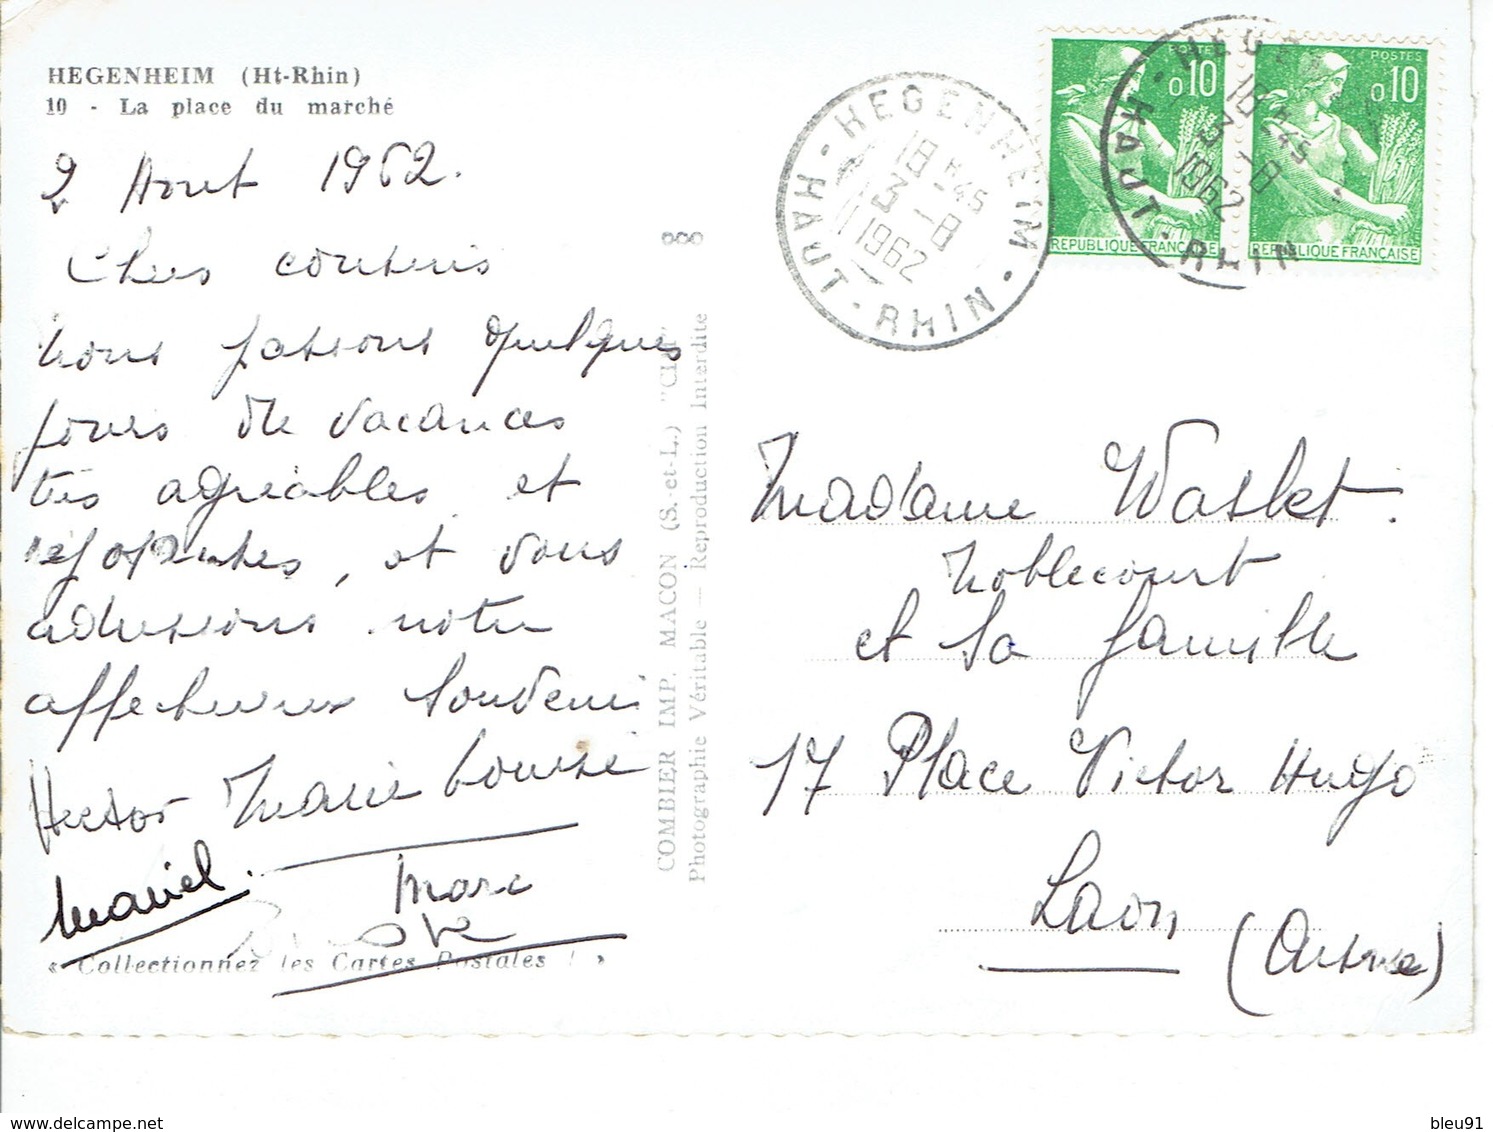 HEGENHEIM (Ht-Rhin)
10 - La place du marché
2 Aout 1962.
Chers cousins
nous passons quelques
jours de vacances
très agréables et
, et vous
adressons notre
affectueux souvenir
Hector Marie Louise
Marcel.
Marc
« Collectionnez les Cartes Postales ! »
COMBIER IMP. MACON (S.-et-L.) "CIM"
Photographie Véritable — Reproduction Interdite
HEGENHEIM
18 H 45
3 - 8
1962
HAUT - RHIN
POSTES
0,10
REPUBLIQUE FRANÇAISE
POSTES
0,10
REPUBLIQUE FRANÇAISE
16 H 45
3 - 8
1962
HAUT - RHIN
Madame Waslet
Noblecourt
et sa famille
17 Place Victor Hugo
Laon
(Aisne)
https://www.delcampe.net
bleu91